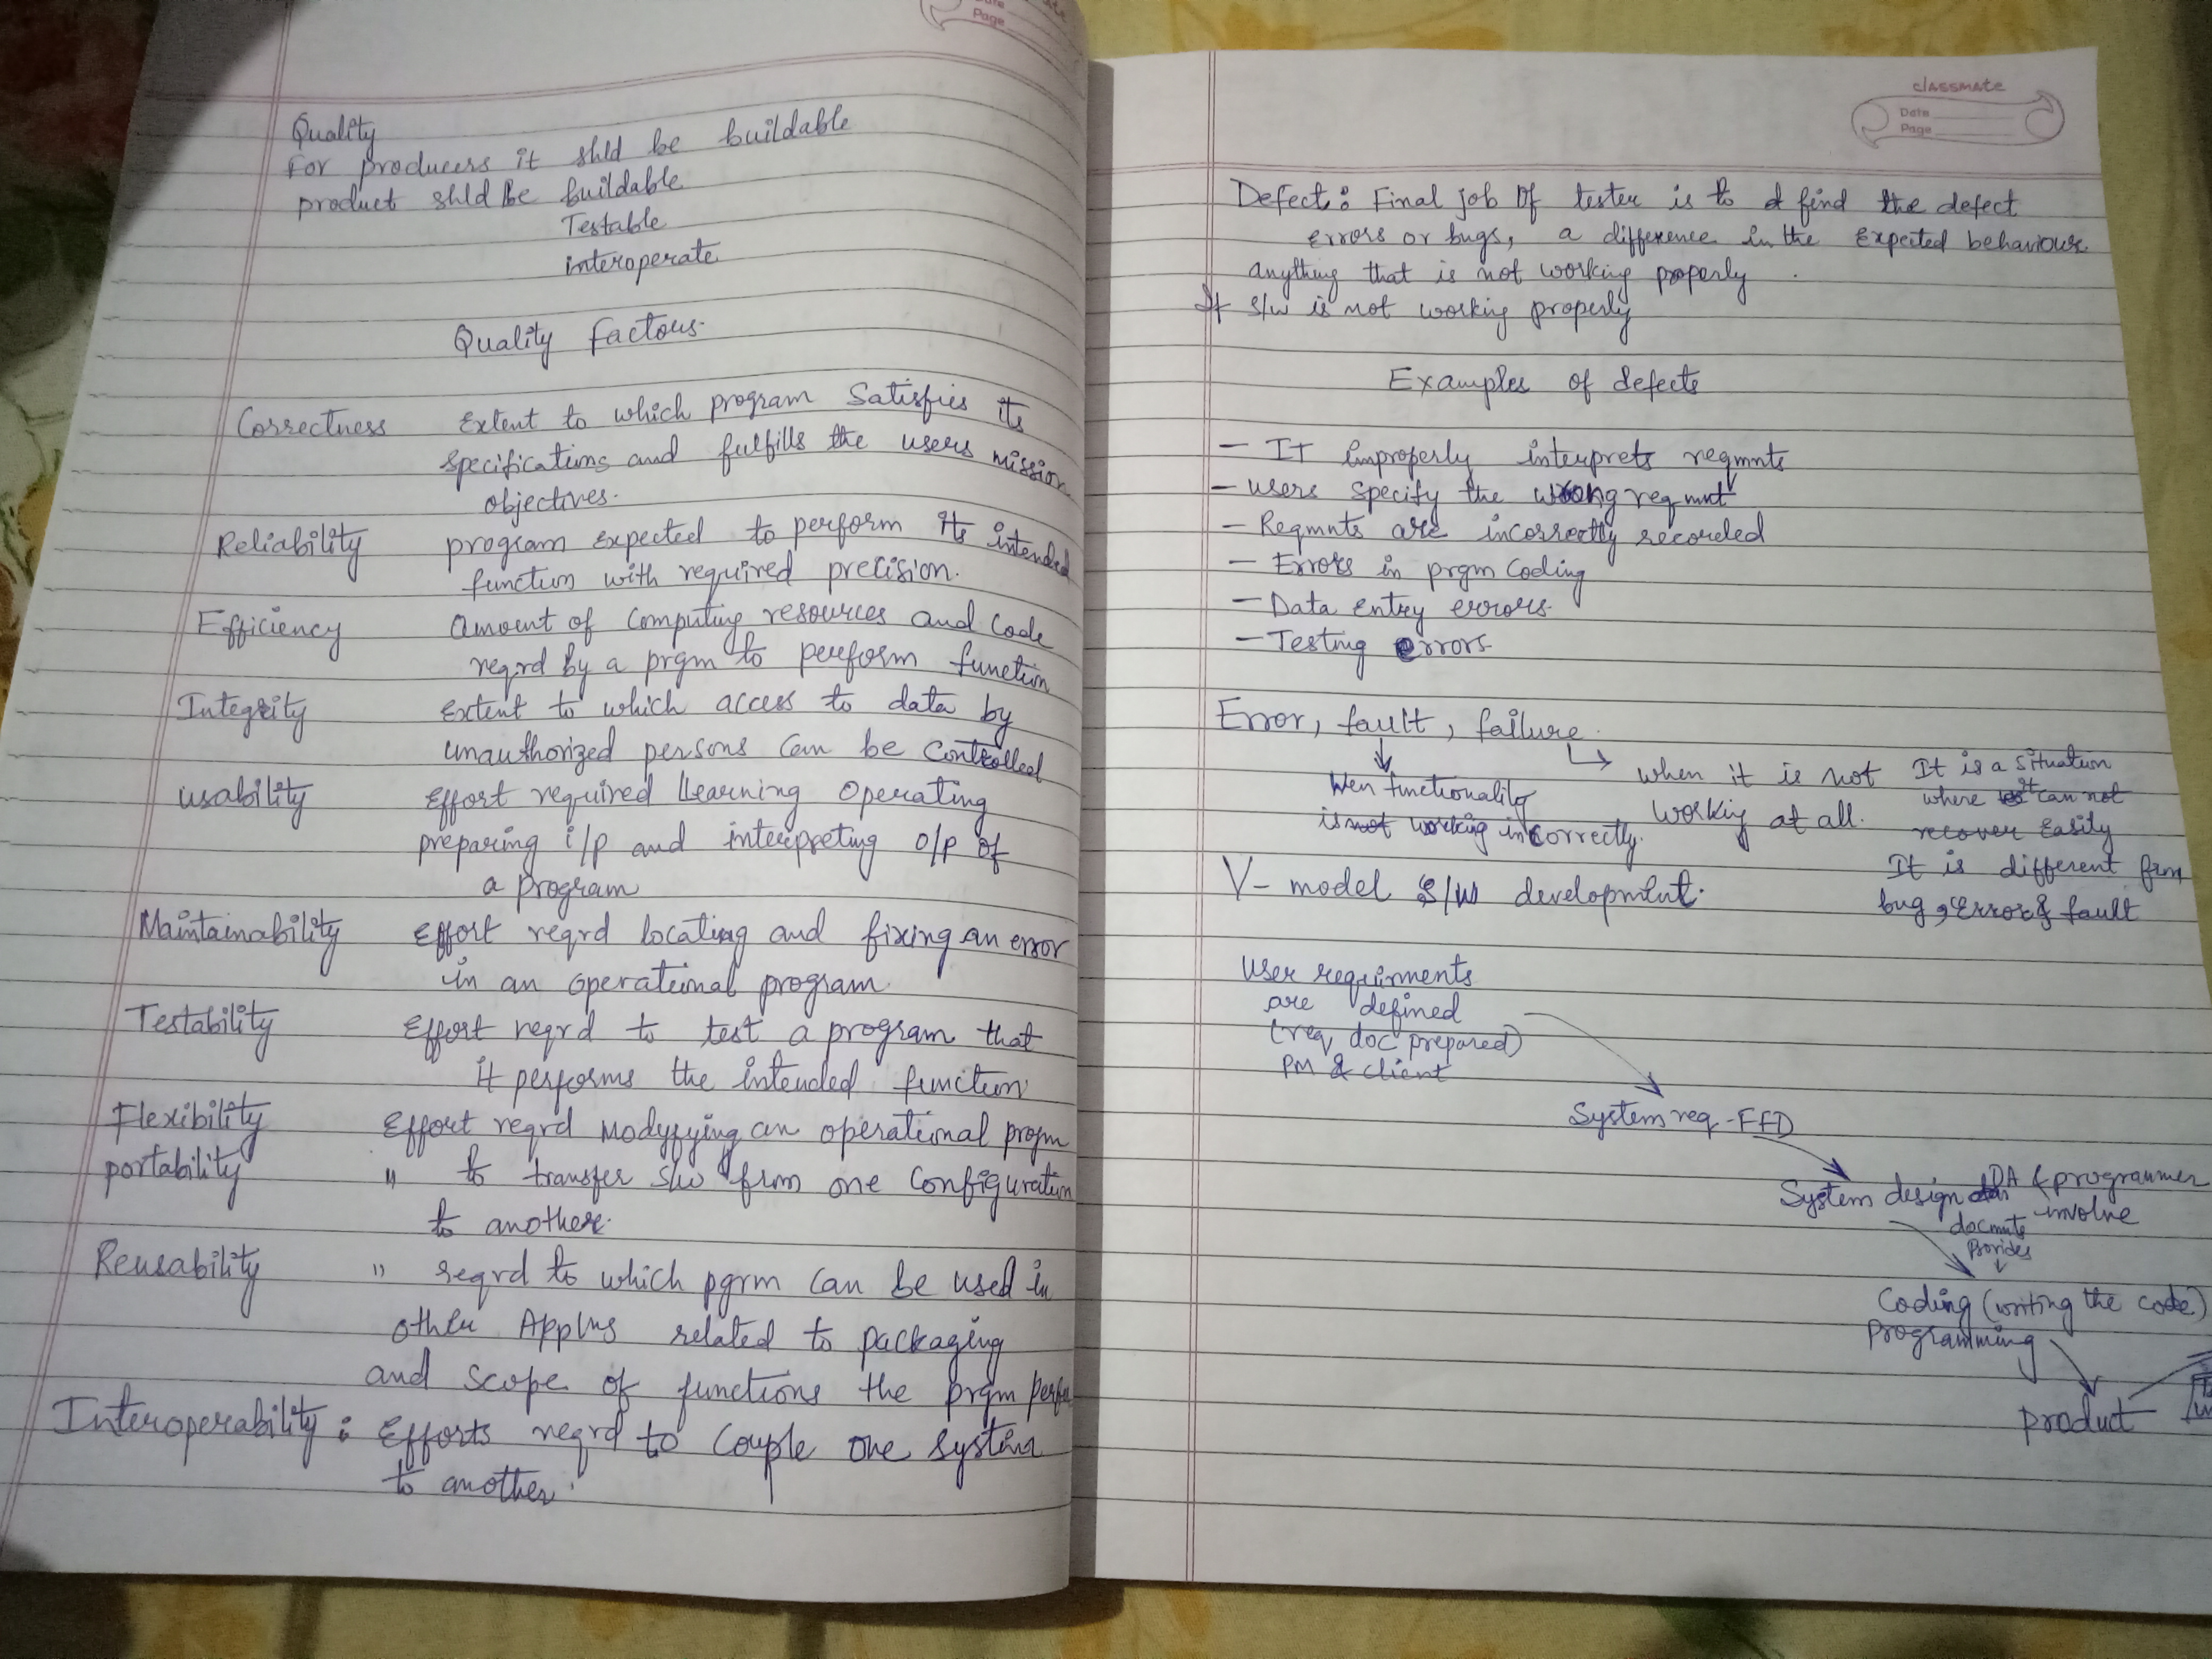 Date
Page
Quality
For producers it shld be buildable
product shld be buildable
Testable
interoperate
Quality factors.
Correctness Extent to which program Satisfies its
specifications and fulfills the users mission
objectives.
Reliability program expected to perform its intended
function with required precision.
Efficiency Amount of computing resources and code
reqrd by a prgm to perform function
Integrity Extent to which access to data by
unauthorized persons can be controlled
usability Effort required learning operating
preparing i/p and interpreting o/p of
a program
Maintainability Effort reqrd locating and fixing an error
in an operational program
Testability Effort reqrd to test a program that
it performs the intended function
Flexibility Effort reqrd Modyfying an operational progm
portability " to transfer s/w from one configuration
to another.
Reusability " reqrd to which pgrm can be used in
other Applns related to packaging
and scope of functions the prgm
Interoperability : Efforts reqrd to couple one system
to another.
classmate
Date
Page
Defect : Final job of tester is to find the defect
errors or bugs, a difference in the expected behaviour.
anything that is not working properly.
If s/w is not working properly
Examples of defects
- IT improperly interprets reqmnts
- users specify the wrong reqmnt
- Reqmnts are incorrectly recorded
- Errors in prgm coding
- Data entry errors.
- Testing errors
Error, fault, failure.
Wen functionality
is not working incorrectly.
when it is not
working at all.
It is a situation
where it can not
recover easily
It is different frm
bug, Error & fault
V- model S/W development.
User requirments
are defined
(req doc prepared)
PM & client
System req - FFD
System design DA & programmer
involve
docmnts
Provides
Coding (writing the code)
Programming
product